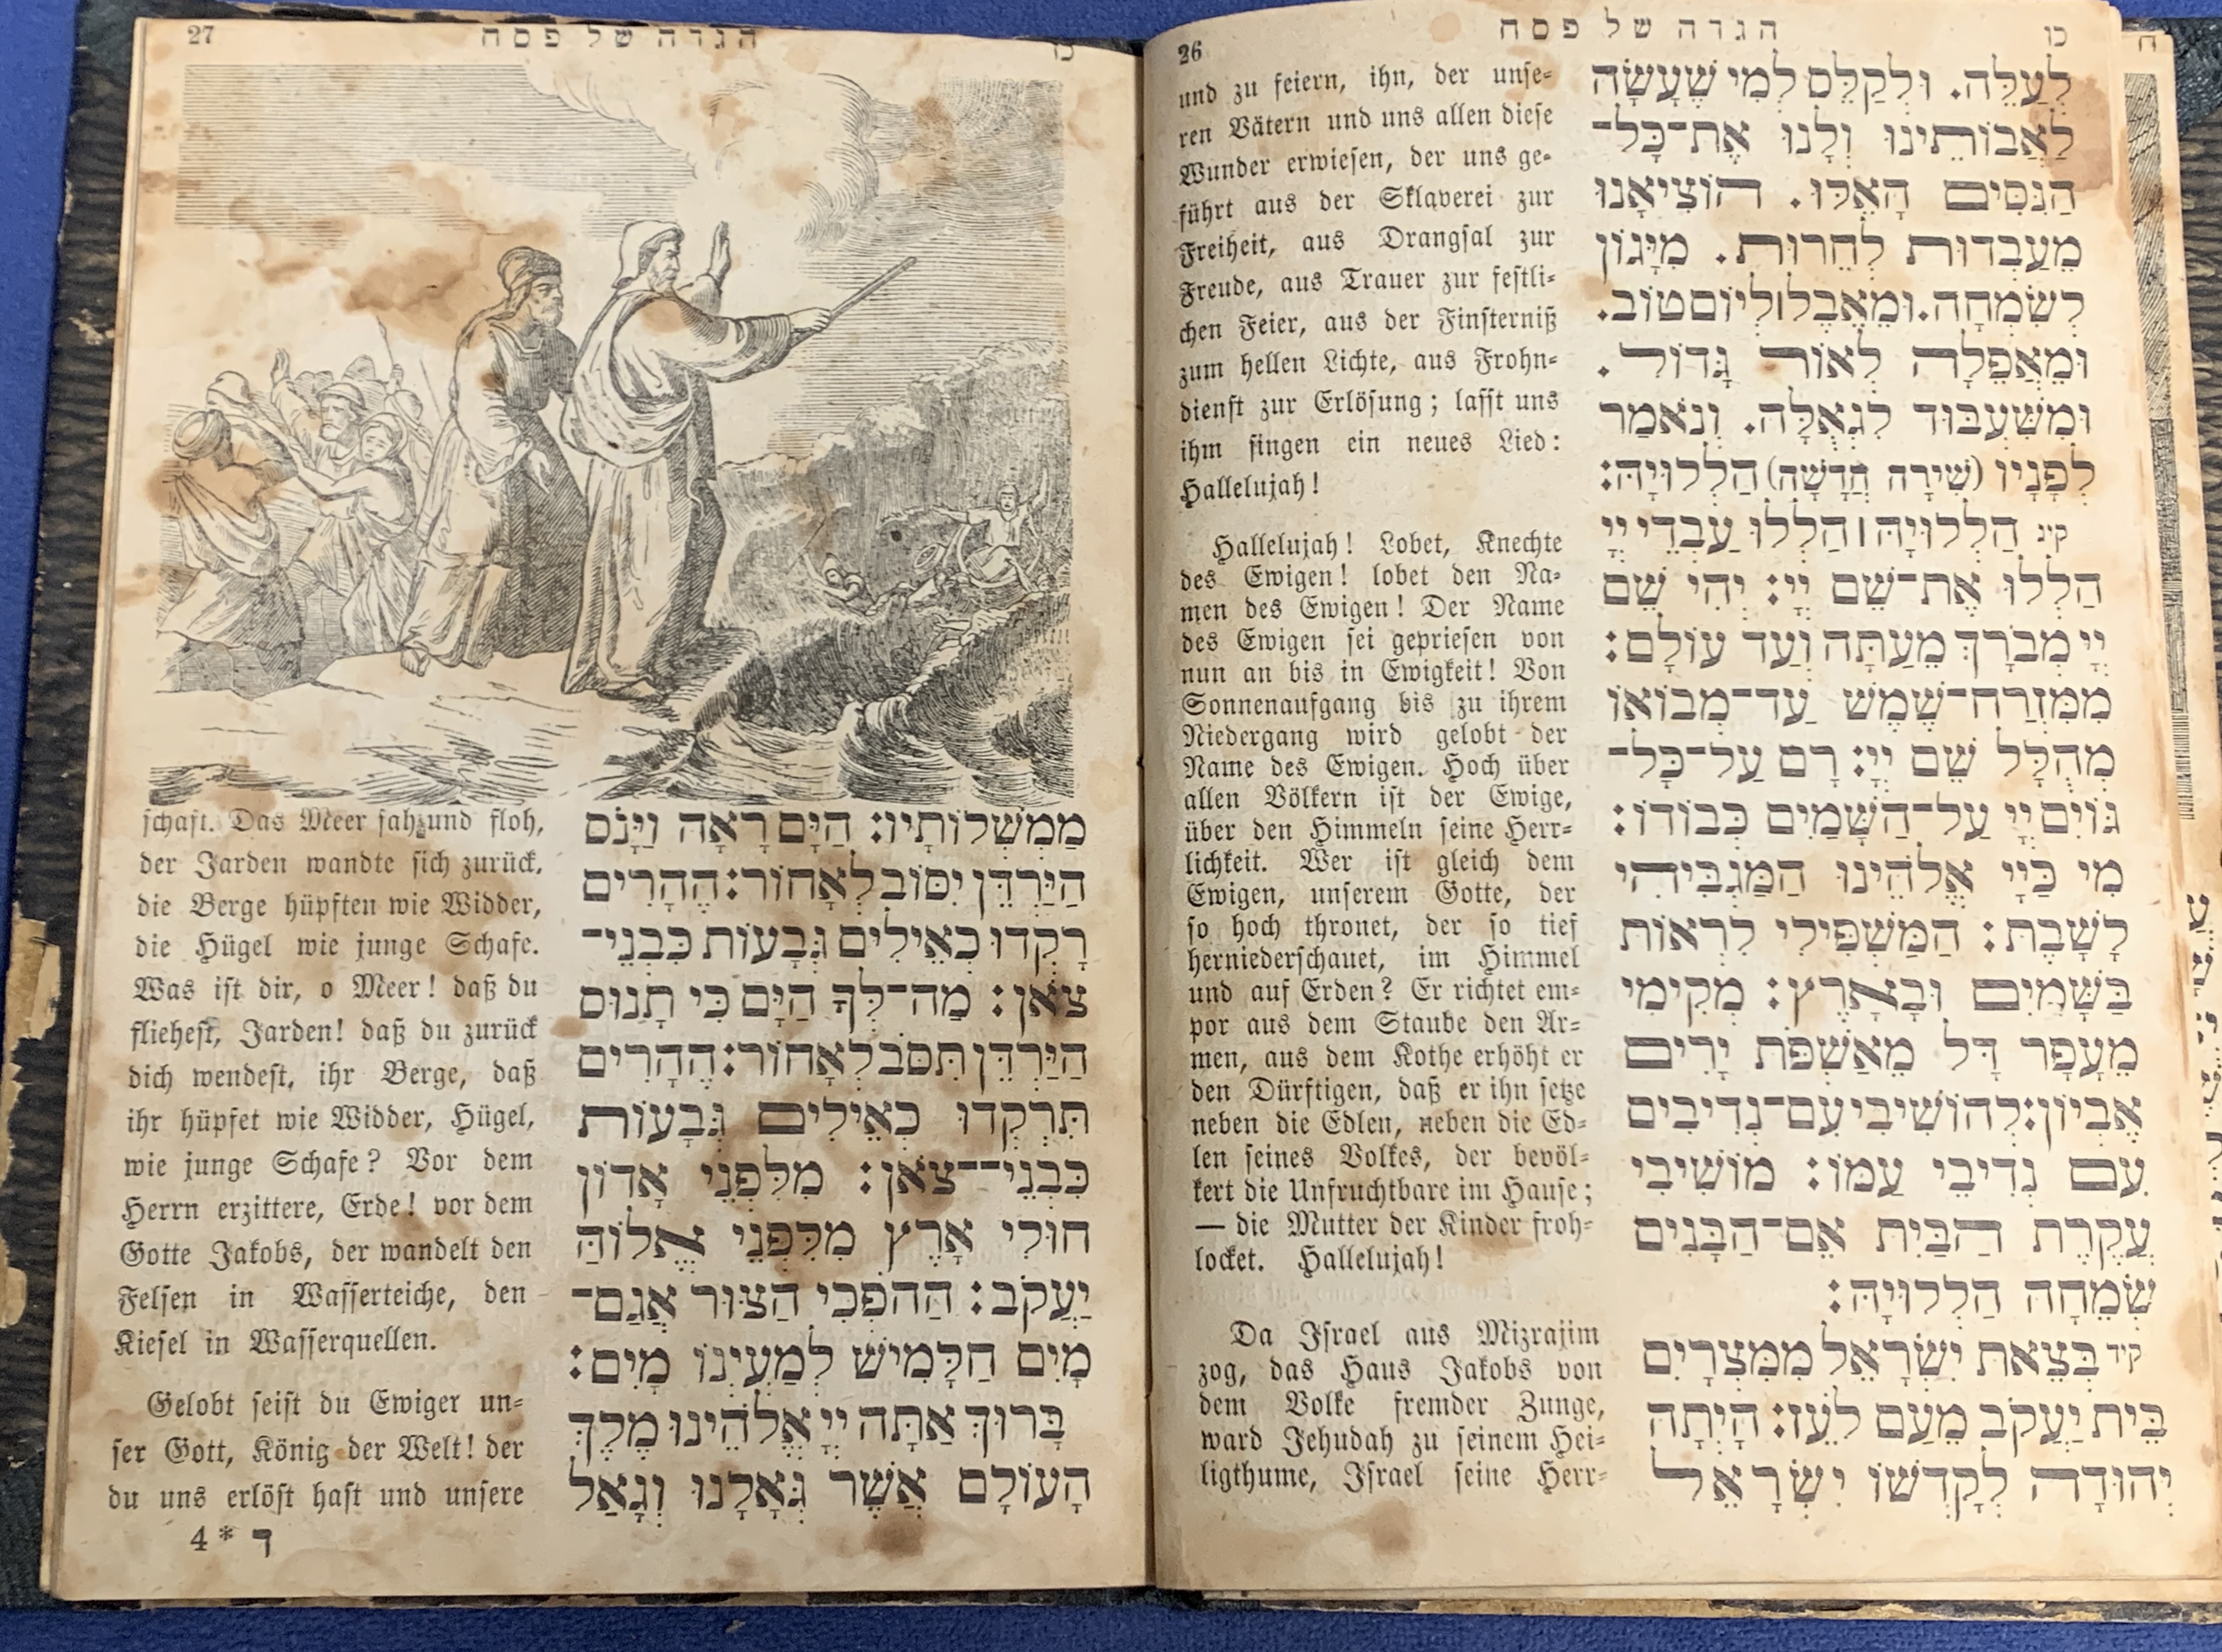 26 הגדה של פסח כו
לְעַלֵּה. וּלְקַלֵּס לְמִי שֶׁעָשָׂה
לַאֲבוֹתֵינוּ וְלָנוּ אֶת־כָּל־
הַנִּסִּים הָאֵלּוּ. הוֹצִיאָנוּ
מֵעַבְדוּת לְחֵרוּת. מִיָּגוֹן
לְשִׂמְחָה. וּמֵאֵבֶל לְיוֹם טוֹב.
וּמֵאֲפֵלָה לְאוֹר גָּדוֹל.
וּמִשִּׁעְבּוּד לִגְאֻלָּה. וְנֹאמַר
לְפָנָיו (שִׁירָה חֲדָשָׁה) הַלְלוּיָהּ:
קיג הַלְלוּיָהּ ׀ הַלְלוּ עַבְדֵי יְיָ
הַלְלוּ אֶת־שֵׁם יְיָ: יְהִי שֵׁם
יְיָ מְבֹרָךְ מֵעַתָּה וְעַד עוֹלָם:
מִמִּזְרַח־שֶׁמֶשׁ עַד־מְבוֹאוֹ
מְהֻלָּל שֵׁם יְיָ: רָם עַל־כָּל־
גּוֹיִם יְיָ עַל־הַשָּׁמַיִם כְּבוֹדוֹ:
מִי כַּייָ אֱלֹהֵינוּ הַמַּגְבִּיהִי
לָשָׁבֶת: הַמַּשְׁפִּילִי לִרְאוֹת
בַּשָּׁמַיִם וּבָאָרֶץ: מְקִימִי
מֵעָפָר דָּל מֵאַשְׁפֹּת יָרִים
אֶבְיוֹן: לְהוֹשִׁיבִי עִם־נְדִיבִים
עִם נְדִיבֵי עַמּוֹ: מוֹשִׁיבִי
עֲקֶרֶת הַבַּיִת אֵם־הַבָּנִים
שְׂמֵחָה הַלְלוּיָהּ:
קיד בְּצֵאת יִשְׂרָאֵל מִמִּצְרָיִם
בֵּית יַעֲקֹב מֵעַם לֹעֵז: הָיְתָה
יְהוּדָה לְקָדְשׁוֹ יִשְׂרָאֵל
und zu feiern, ihn, der unse-
ren Vätern und uns allen diese
Wunder erwiesen, der uns ge-
führt aus der Sklaverei zur
Freiheit, aus Drangsal zur
Freude, aus Trauer zur festli-
chen Feier, aus der Finsterniß
zum hellen Lichte, aus Frohn-
dienst zur Erlösung; lasst uns
ihm singen ein neues Lied:
Hallelujah!
Hallelujah! Lobet, Knechte
des Ewigen! lobet den Na-
men des Ewigen! Der Name
des Ewigen sei gepriesen von
nun an bis in Ewigkeit! Von
Sonnenaufgang bis zu ihrem
Niedergang wird gelobt der
Name des Ewigen. Hoch über
allen Völkern ist der Ewige,
über den Himmeln seine Herr-
lichkeit. Wer ist gleich dem
Ewigen, unserem Gotte, der
so hoch thronet, der so tief
herniederschauet, im Himmel
und auf Erden? Er richtet em-
por aus dem Staube den Ar-
men, aus dem Kothe erhöht er
den Dürftigen, daß er ihn setze
neben die Edlen, neben die Ed-
len seines Volkes, der bevöl-
kert die Unfruchtbare im Hause;
— die Mutter der Kinder froh-
locket. Hallelujah!
Da Israel aus Mizrajim
zog, das Haus Jakobs von
dem Volke fremder Zunge,
ward Jehudah zu seinem Hei-
ligthume, Israel seine Herr-
27 הגדה של פסח כז
מַמְשְׁלוֹתָיו: הַיָּם רָאָה וַיָּנֹס
הַיַּרְדֵּן יִסּוֹב לְאָחוֹר: הֶהָרִים
רָקְדוּ כְאֵילִים גְּבָעוֹת כִּבְנֵי־
צֹאן: מַה־לְּךָ הַיָּם כִּי תָנוּס
הַיַּרְדֵּן תִּסֹּב לְאָחוֹר: הֶהָרִים
תִּרְקְדוּ כְאֵילִים גְּבָעוֹת
כִּבְנֵי־־צֹאן: מִלִּפְנֵי אָדוֹן
חוּלִי אָרֶץ מִלִּפְנֵי אֱלוֹהַּ
יַעֲקֹב: הַהֹפְכִי הַצּוּר אֲגַם־
מָיִם חַלָּמִישׁ לְמַעְיְנוֹ מָיִם:
בָּרוּךְ אַתָּה יְיָ אֱלֹהֵינוּ מֶלֶךְ
הָעוֹלָם אֲשֶׁר גְּאָלָנוּ וְגָאַל
schaft. Das Meer sah und floh,
der Jarden wandte sich zurück,
die Berge hüpften wie Widder,
die Hügel wie junge Schafe.
Was ist dir, o Meer! daß du
fliehest, Jarden! daß du zurück
dich wendest, ihr Berge, daß
ihr hüpfet wie Widder, Hügel,
wie junge Schafe? Vor dem
Herrn erzittere, Erde! vor dem
Gotte Jakobs, der wandelt den
Felsen in Wasserteiche, den
Kiesel in Wasserquellen.
Gelobt seist du Ewiger un-
ser Gott, König der Welt! der
du uns erlöst hast und unsere
4* ד